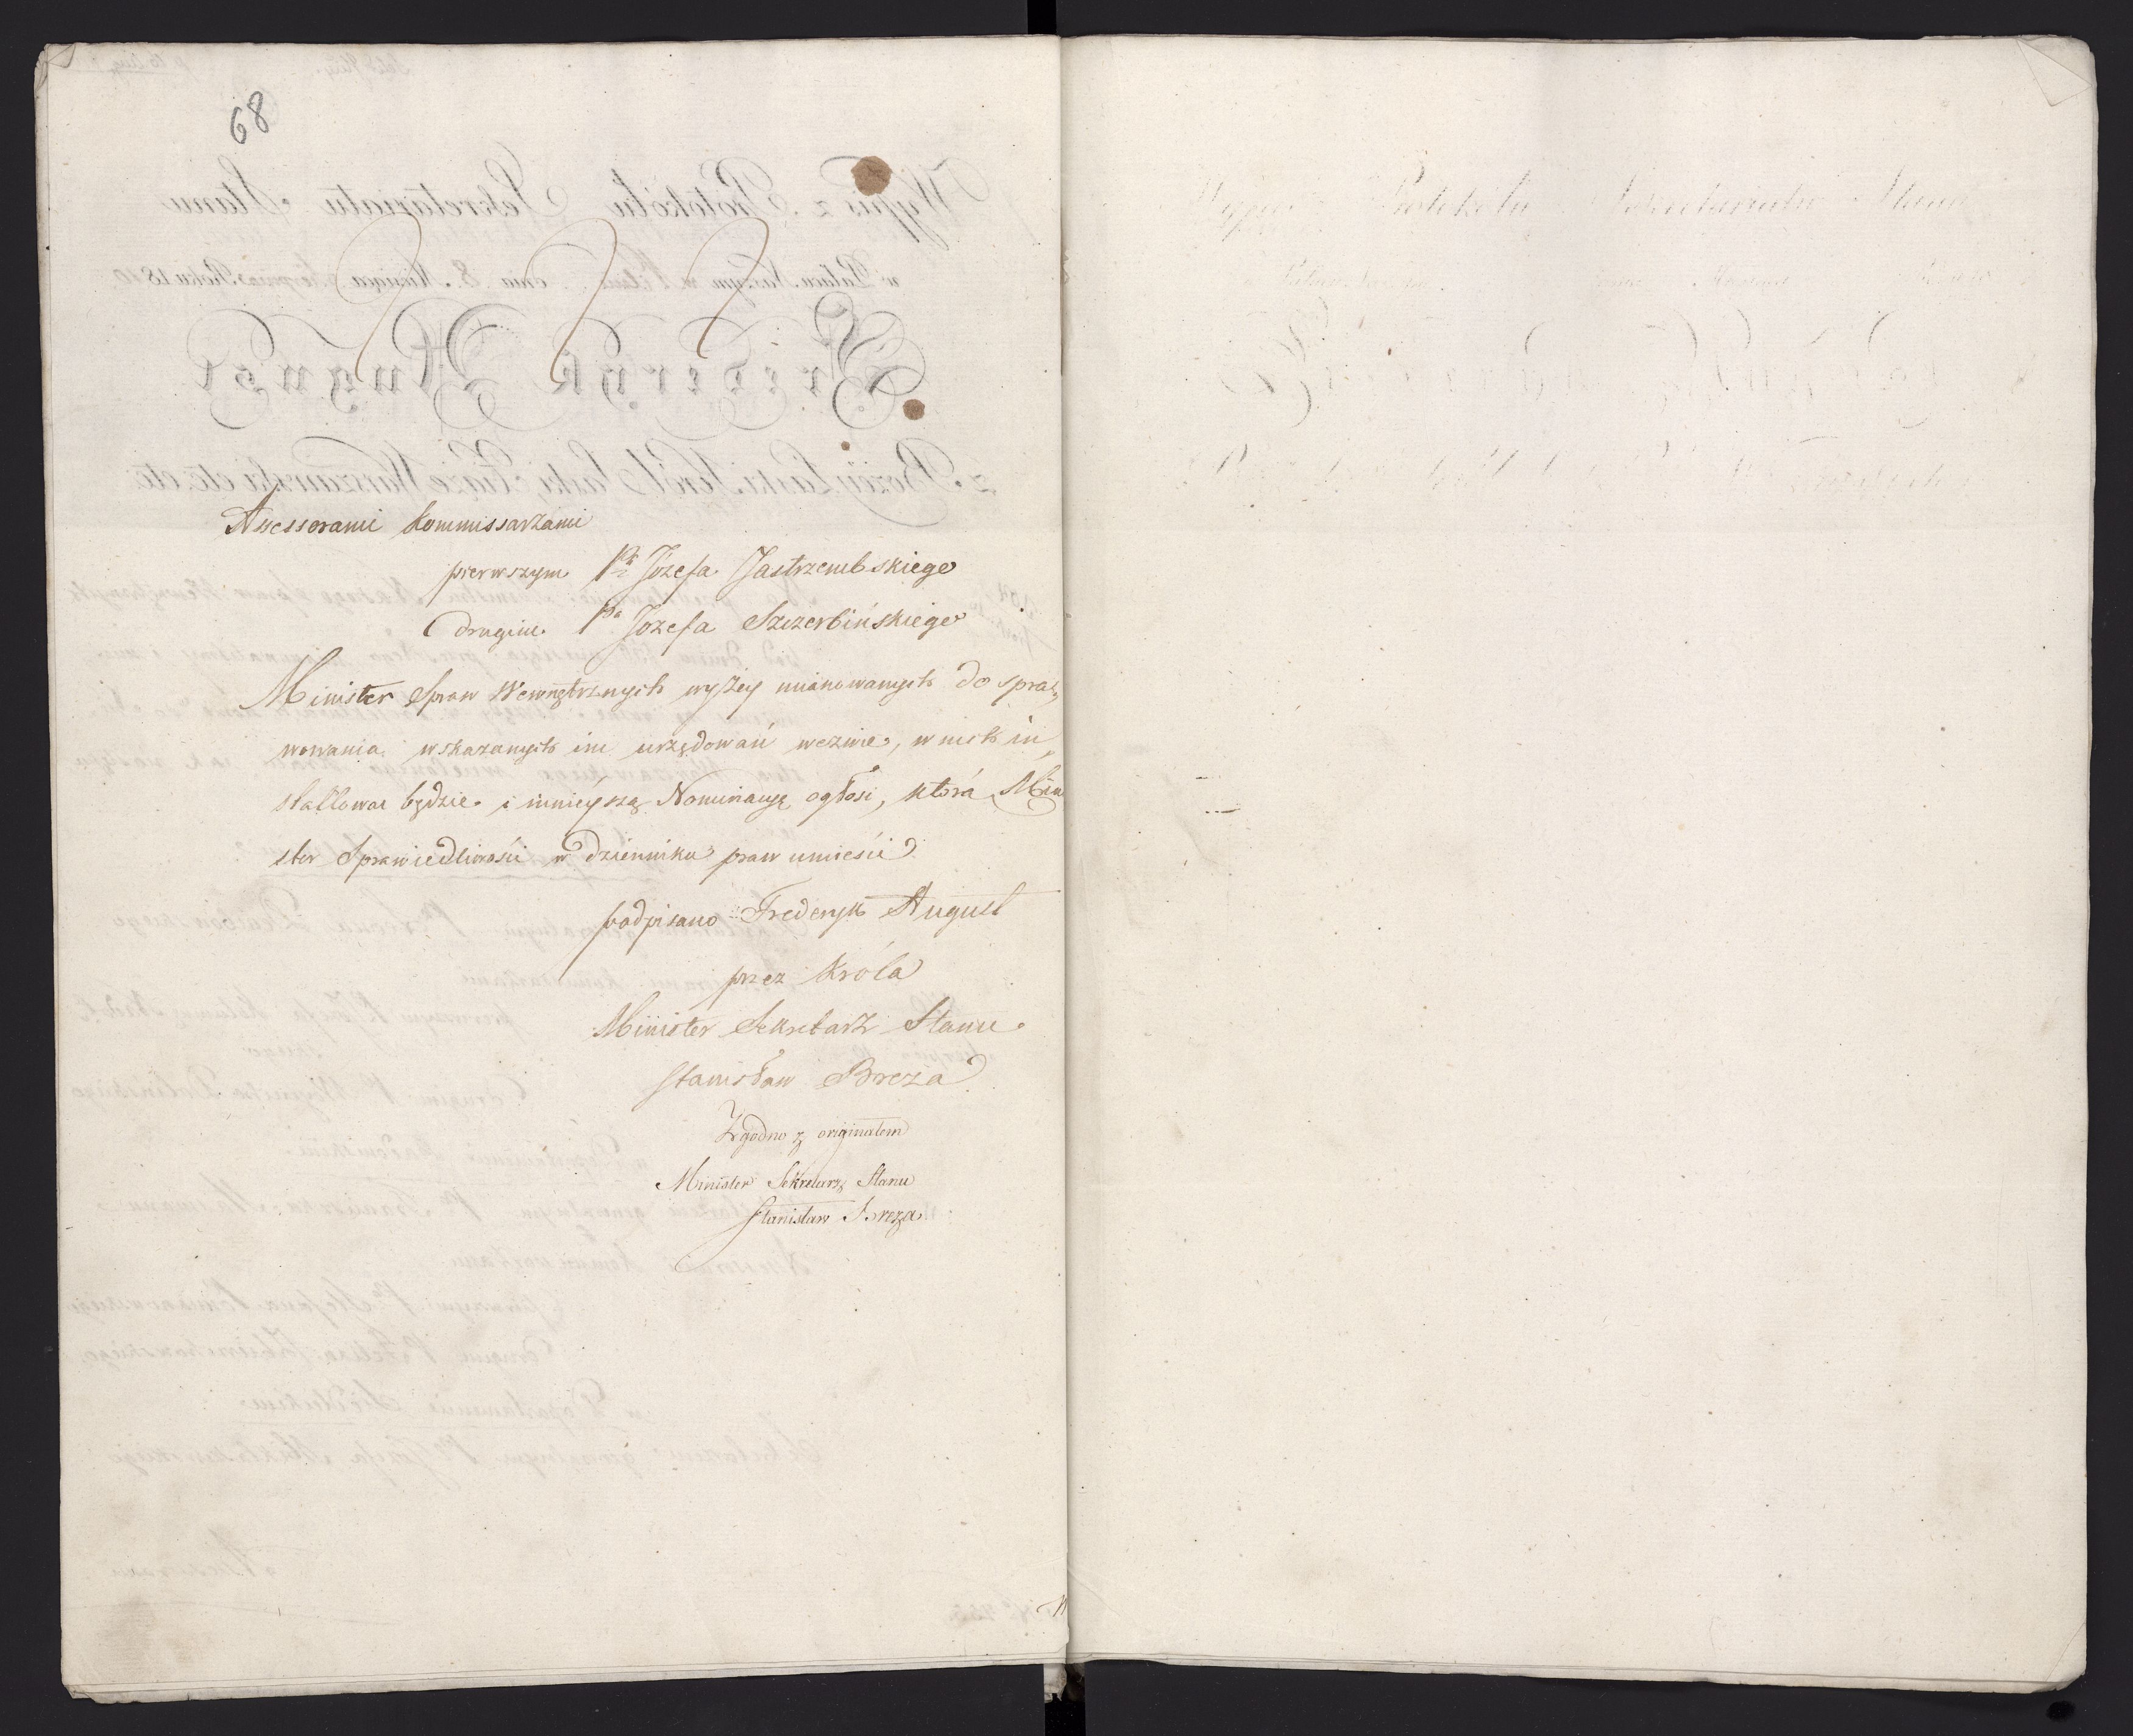 68
Assessorami Kommissarzami
pierwszym Pa Józefa Jastrzembskiego
drugim Pa Jozefa Szczerbińskiego
Minister Spraw Wewnętrznych wyżey mianowanych do spra„
wowania wskazanych im urzędowań wezwie, w nich in„
stallować będzie i ninieyszą Nominacyą ogłosi, którą Mini
ster Sprawiedliwości w dzienniku praw umieści
podpisano Frederyk August
przez Króla
Minister Sekretarz Stanu
Stanisław Breza
Zgodno z originałem
Minister Sekretarz Stanu
Stanisław Breza